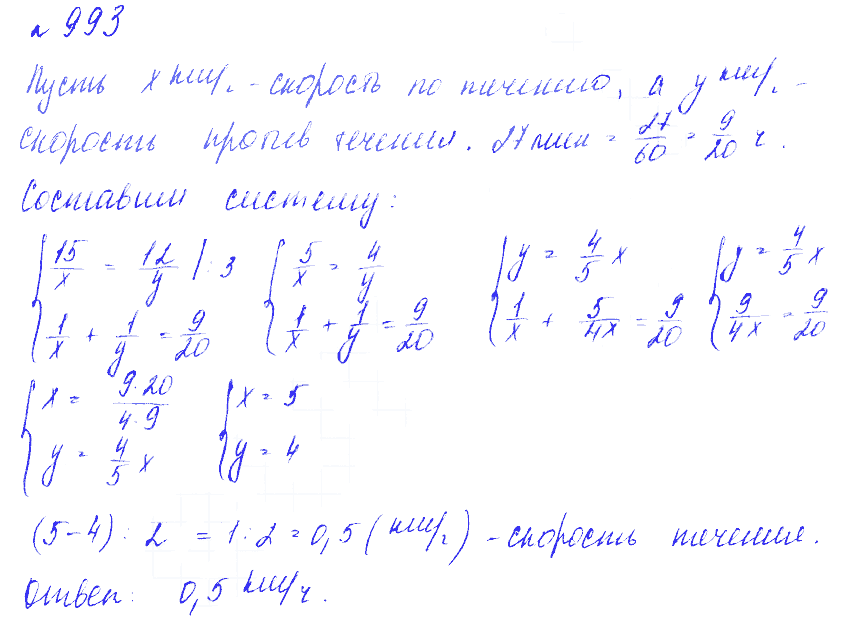 №993
Пусть x км/ч - скорость по течению, а y км/ч -
скорость против течения. 27 мин = 27/60 = 9/20 ч.
Составим систему:
{ 15/x = 12/y |:3 { 5/x = 4/y { y = 4/5 x { y = 4/5 x
{ 1/x + 1/y = 9/20 { 1/x + 1/y = 9/20 { 1/x + 5/4x = 9/20 { 9/4x = 9/20
{ x = 9·20/4·9 { x = 5
{ y = 4/5 x { y = 4
(5-4) : 2 = 1:2 = 0,5 (км/ч) - скорость течения.
Ответ: 0,5 км/ч.